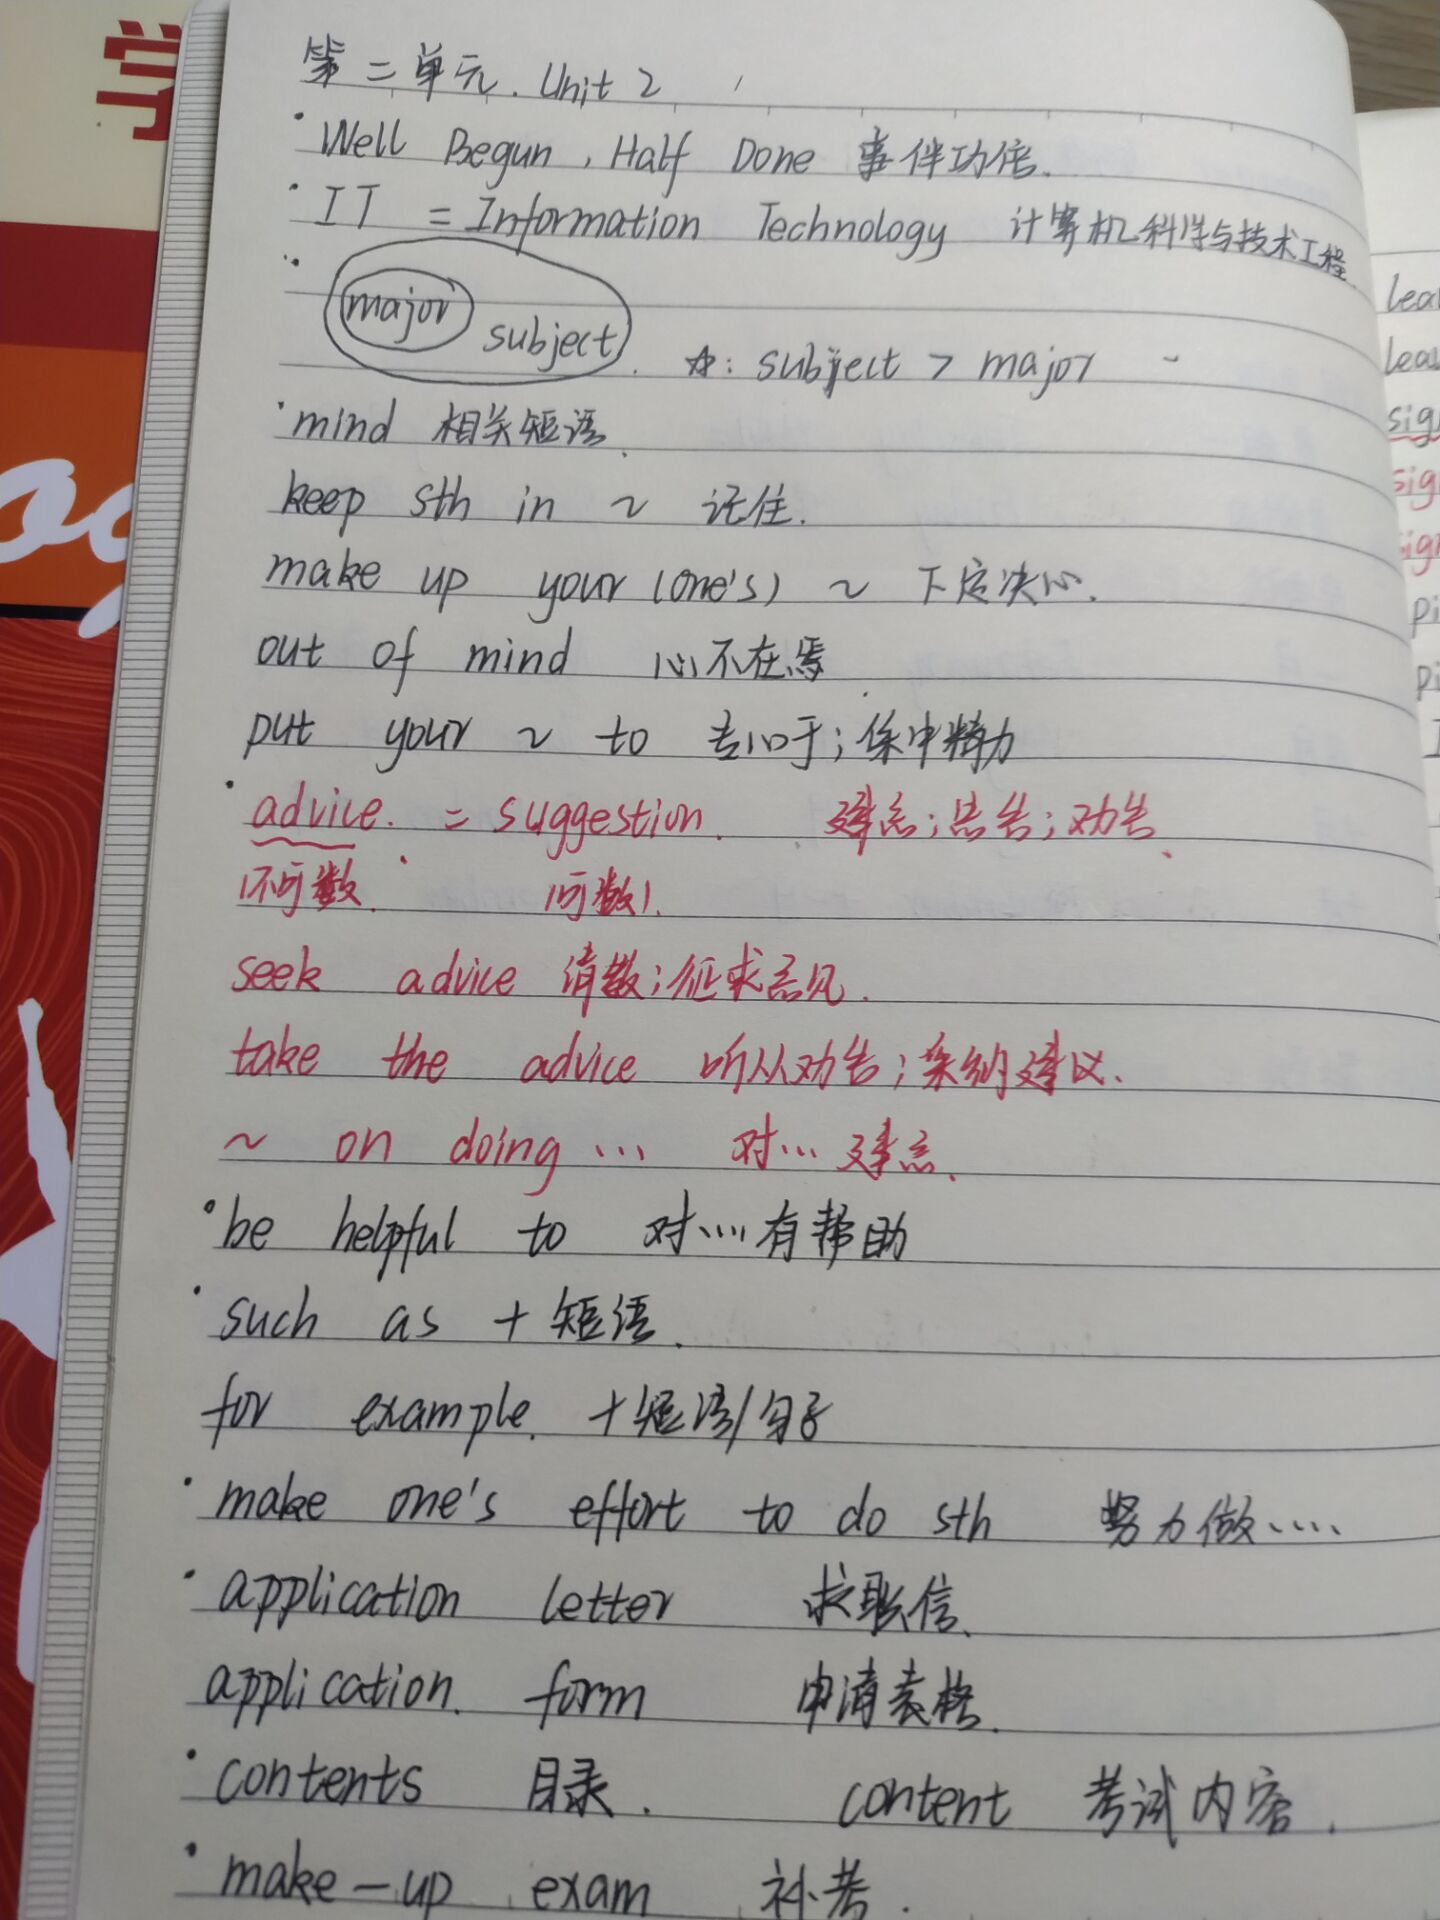 学
第二单元. Unit 2
· Well Begun, Half Done 事伴功倍.
· IT = Information Technology 计算机科学与技术工程.
major subject. ☆: subject > major
· mind 相关短语.
keep sth in ~ 记住.
make up your (one's) ~ 下定决心.
out of mind 心不在焉
put your ~ to 专心于; 集中精力
· advice. = suggestion. 建志; 忠告; 劝告.
(不可数. (可数).
seek advice 请教; 征求意见.
take the advice 听从劝告; 采纳建议.
~ on doing ... 对... 建志.
· be helpful to 对....有帮助
· such as + 短语.
for example. + 短语/句子
· make one's effort to do sth 努力做.....
· application letter 求职信.
application. form 申请表格.
· contents 目录. content 考试内容.
· make-up exam 补考.